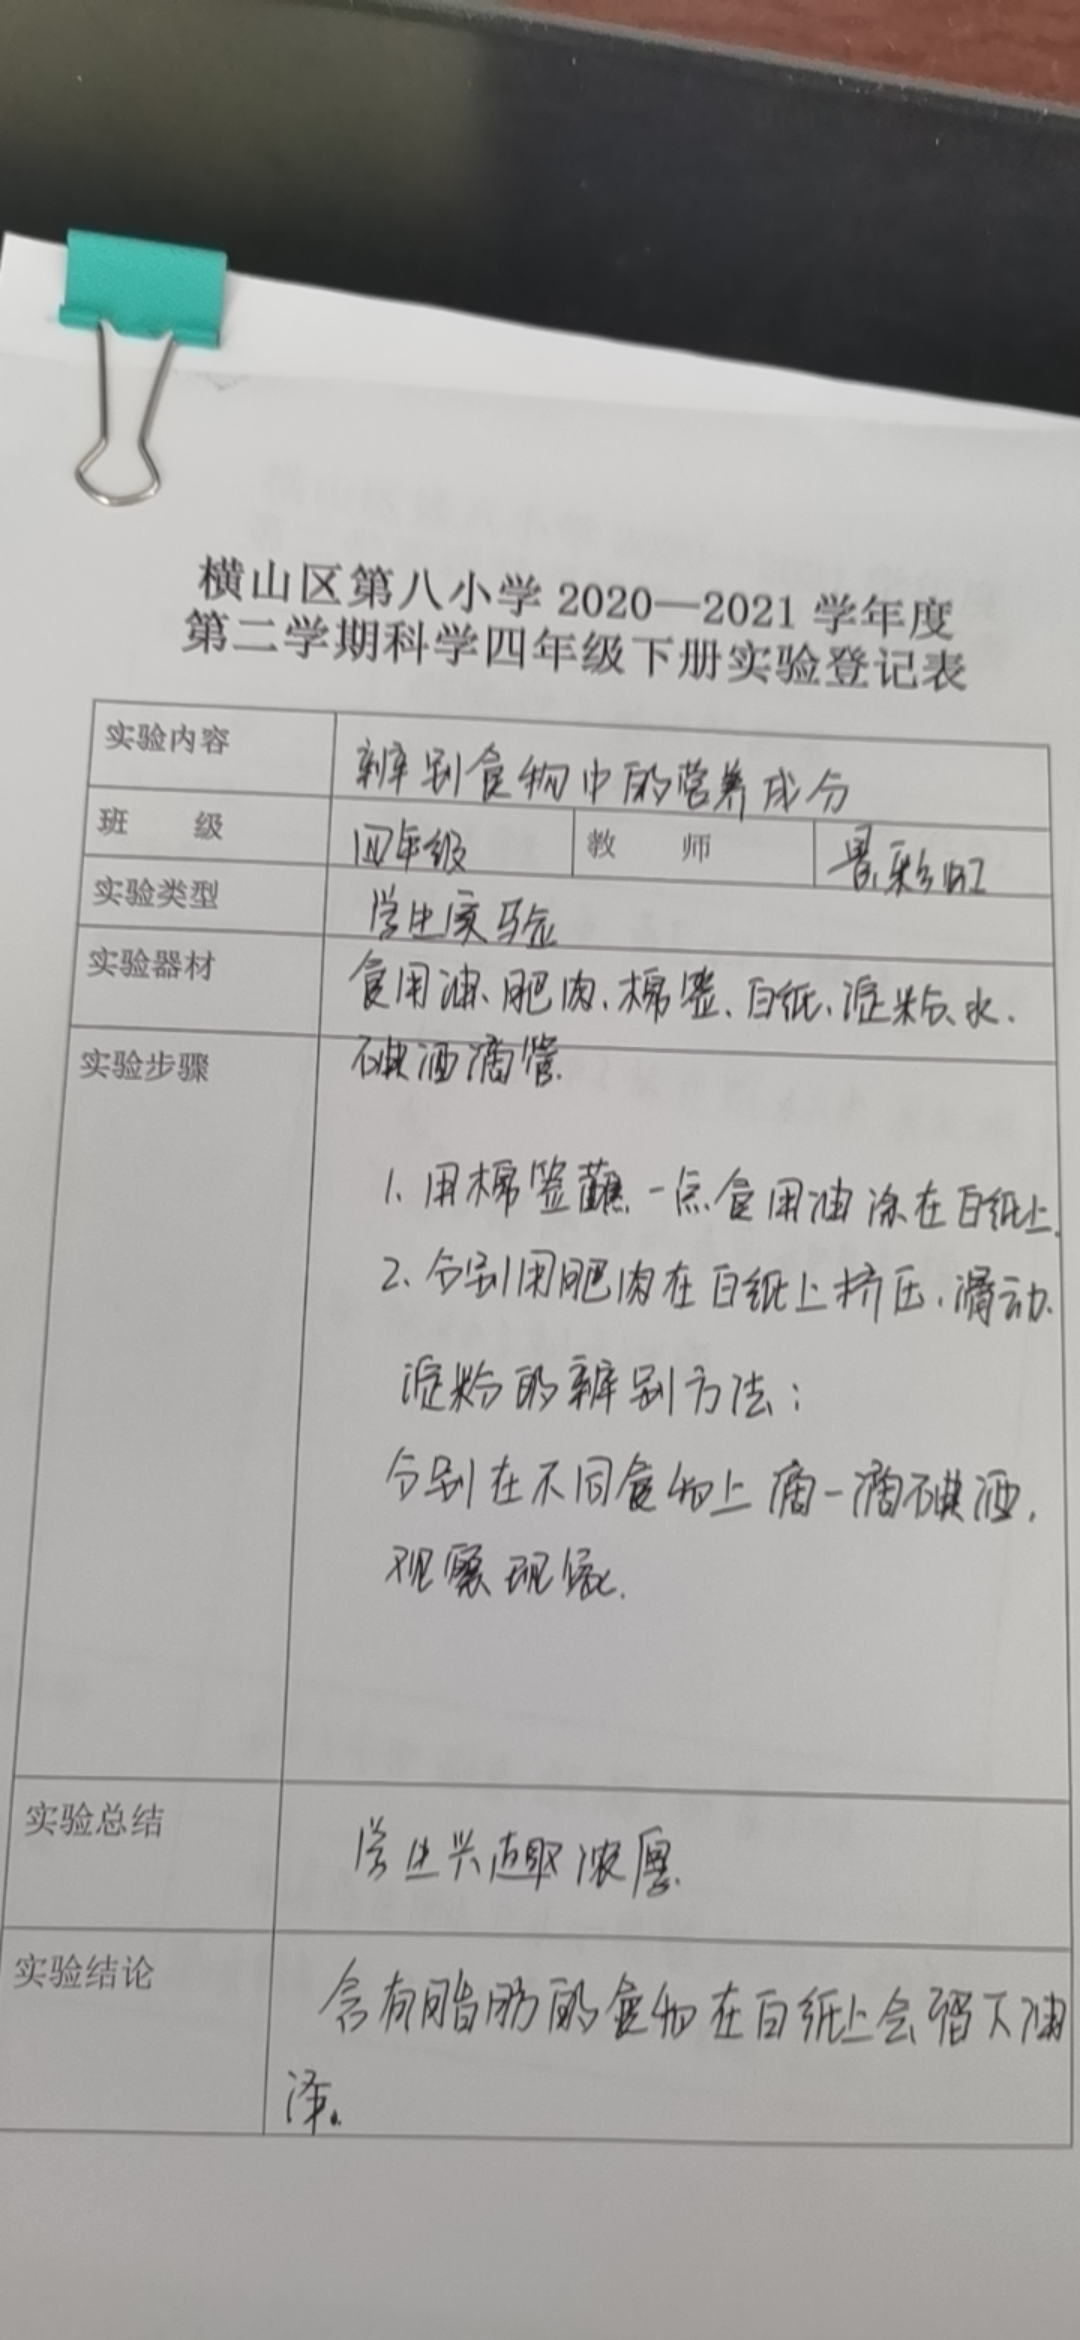 横山区第八小学 2020—2021 学年度
第二学期科学四年级下册实验登记表
实验内容 辨别食物中的营养成分
班 级 四年级 教 师
实验类型 学生实验
实验器材 食用油、肥肉、棉签、白纸、淀粉、水、
碘酒滴管.
实验步骤
1、用棉签蘸一点食用油涂在白纸上.
2、分别用肥肉在白纸上挤压、滑动.
淀粉的辨别方法:
分别在不同食物上滴一滴碘酒,
观察现象.
实验总结 学生兴趣浓厚.
实验结论 含有脂肪的食物在白纸上会留下油
泽。